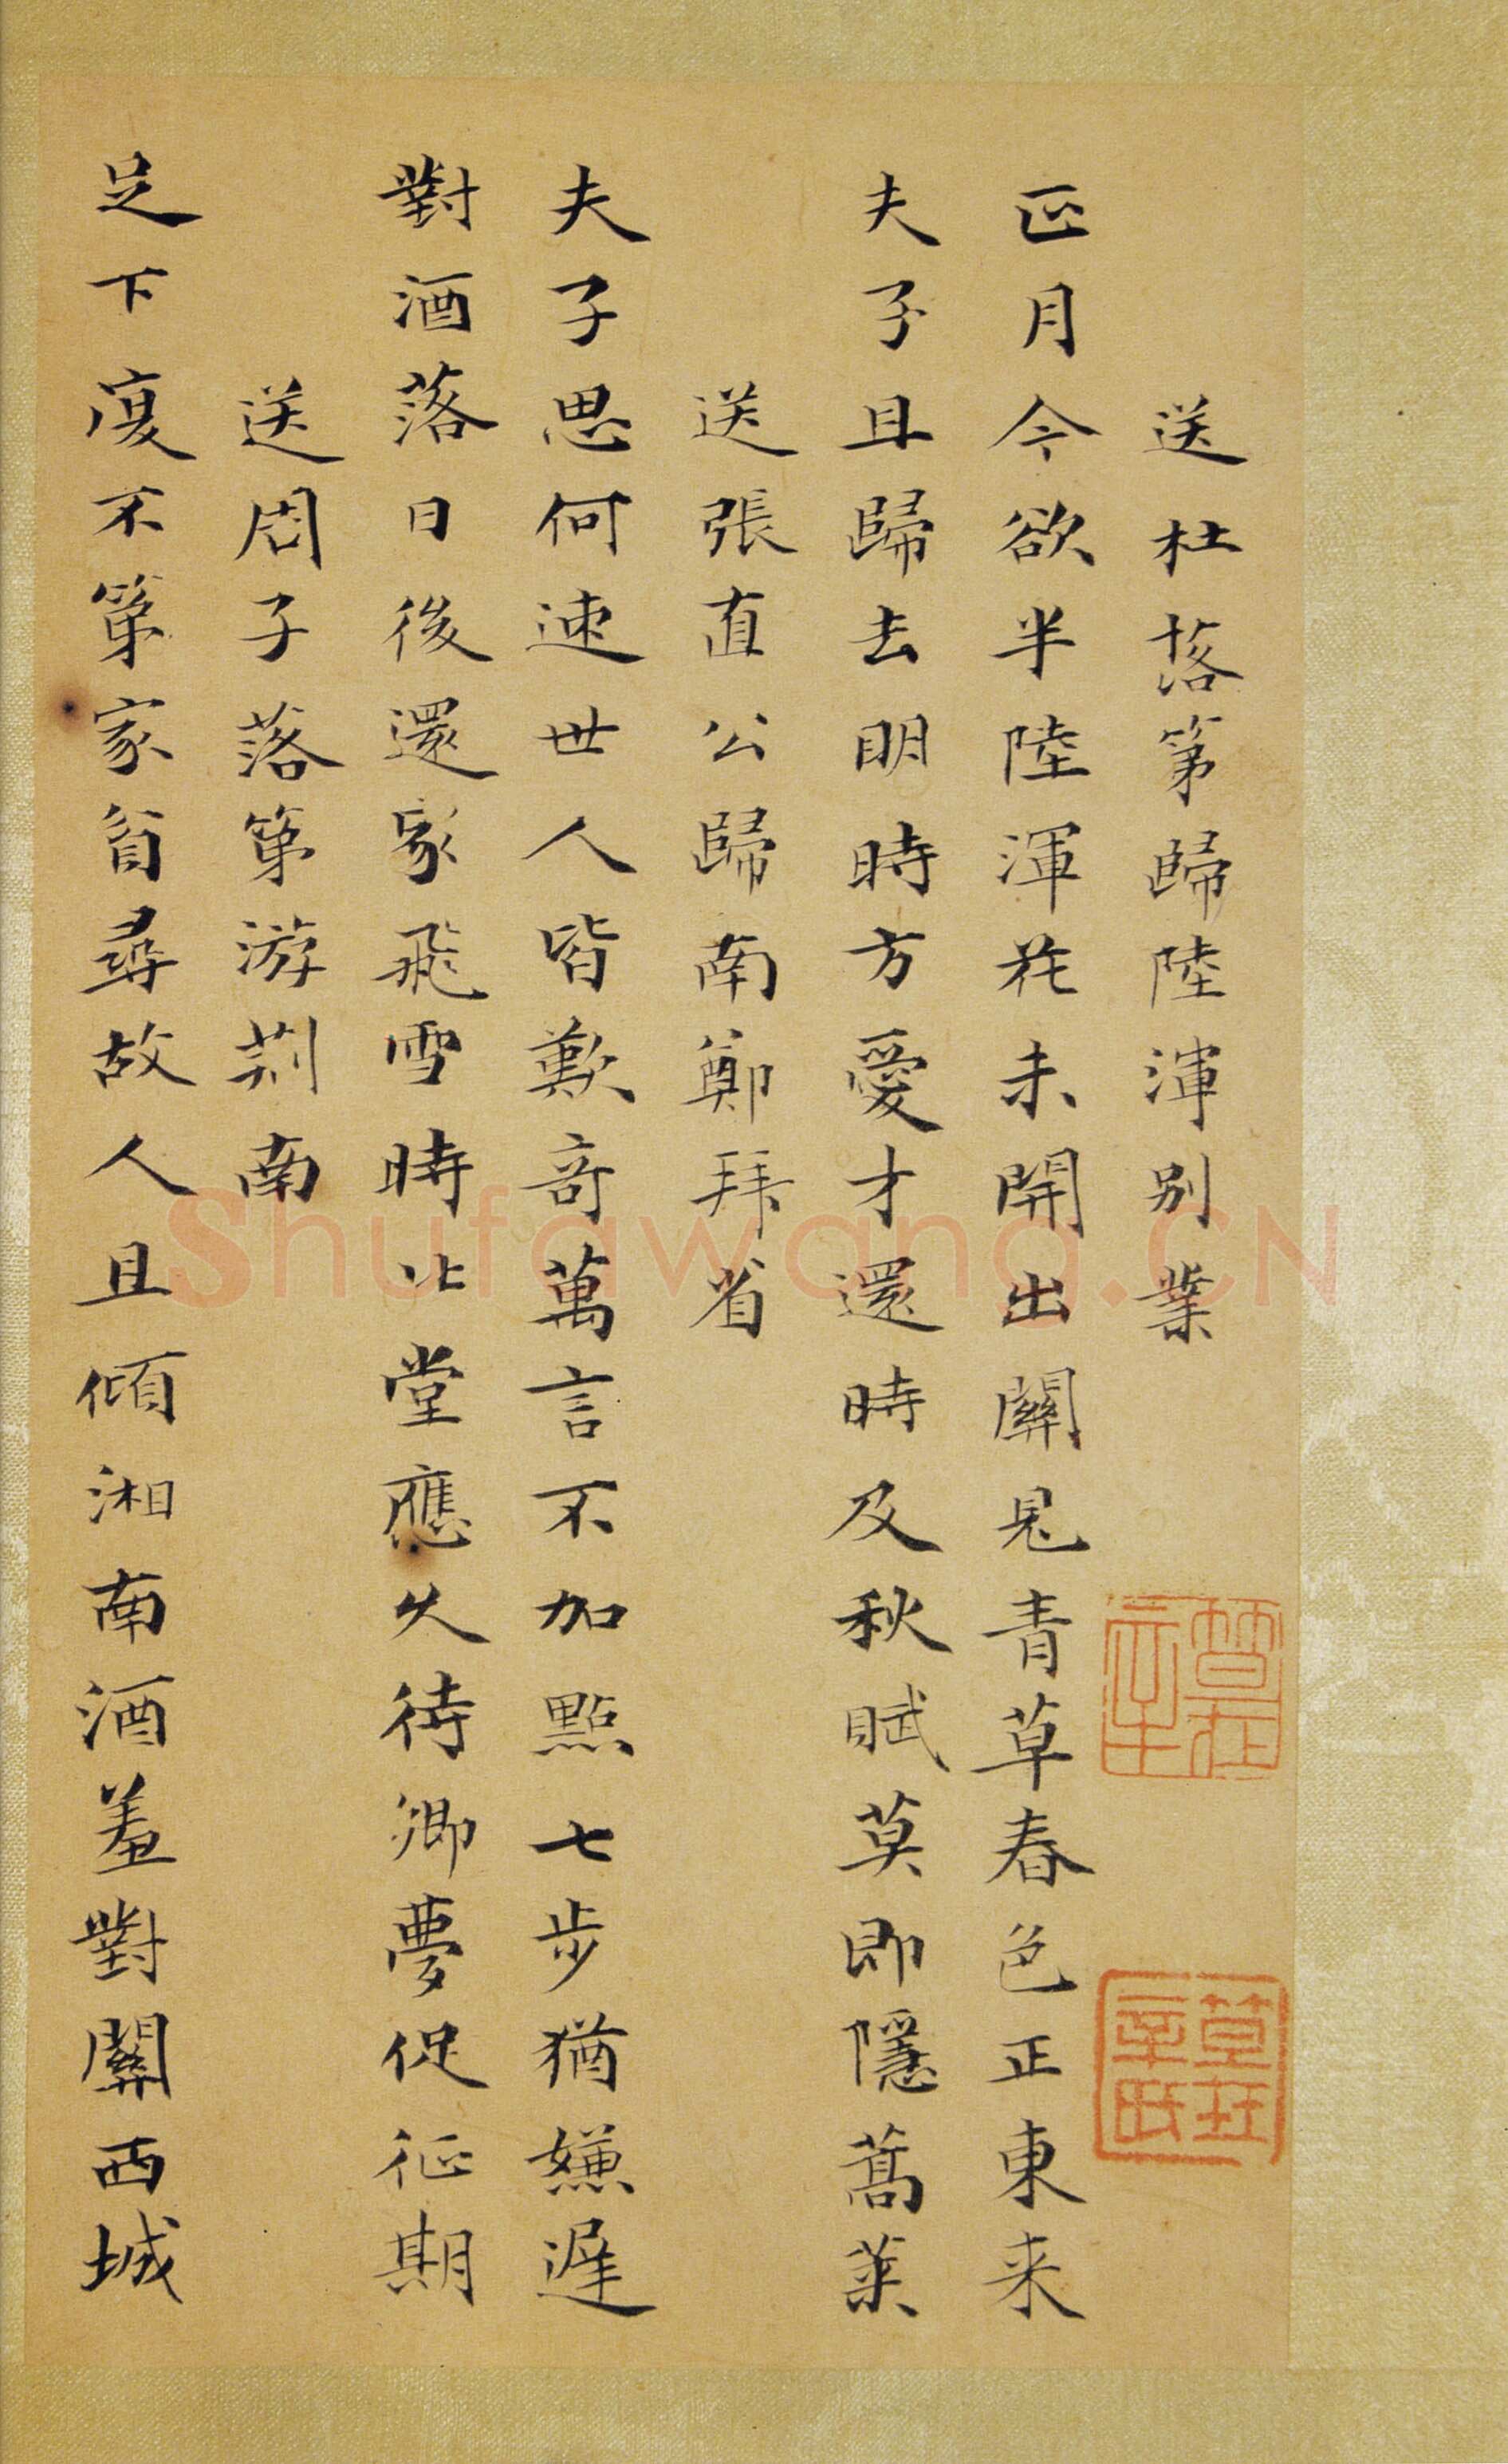 送杜落第歸陸渾別業
正月今欲半陸渾花未開出關見青草春色正東来
夫子且歸去明時方愛才還時及秋賦莫即隱蒿萊
送張直公歸南鄭拜省
夫子思何速世人皆歎奇萬言不加點七步猶嫌遲
對酒落日後還家飛雪時北堂應久待鄉夢促征期
送周子落第游荊南
足下復不第家貧尋故人且傾湘南酒羞對關西城
Shufawang.CN